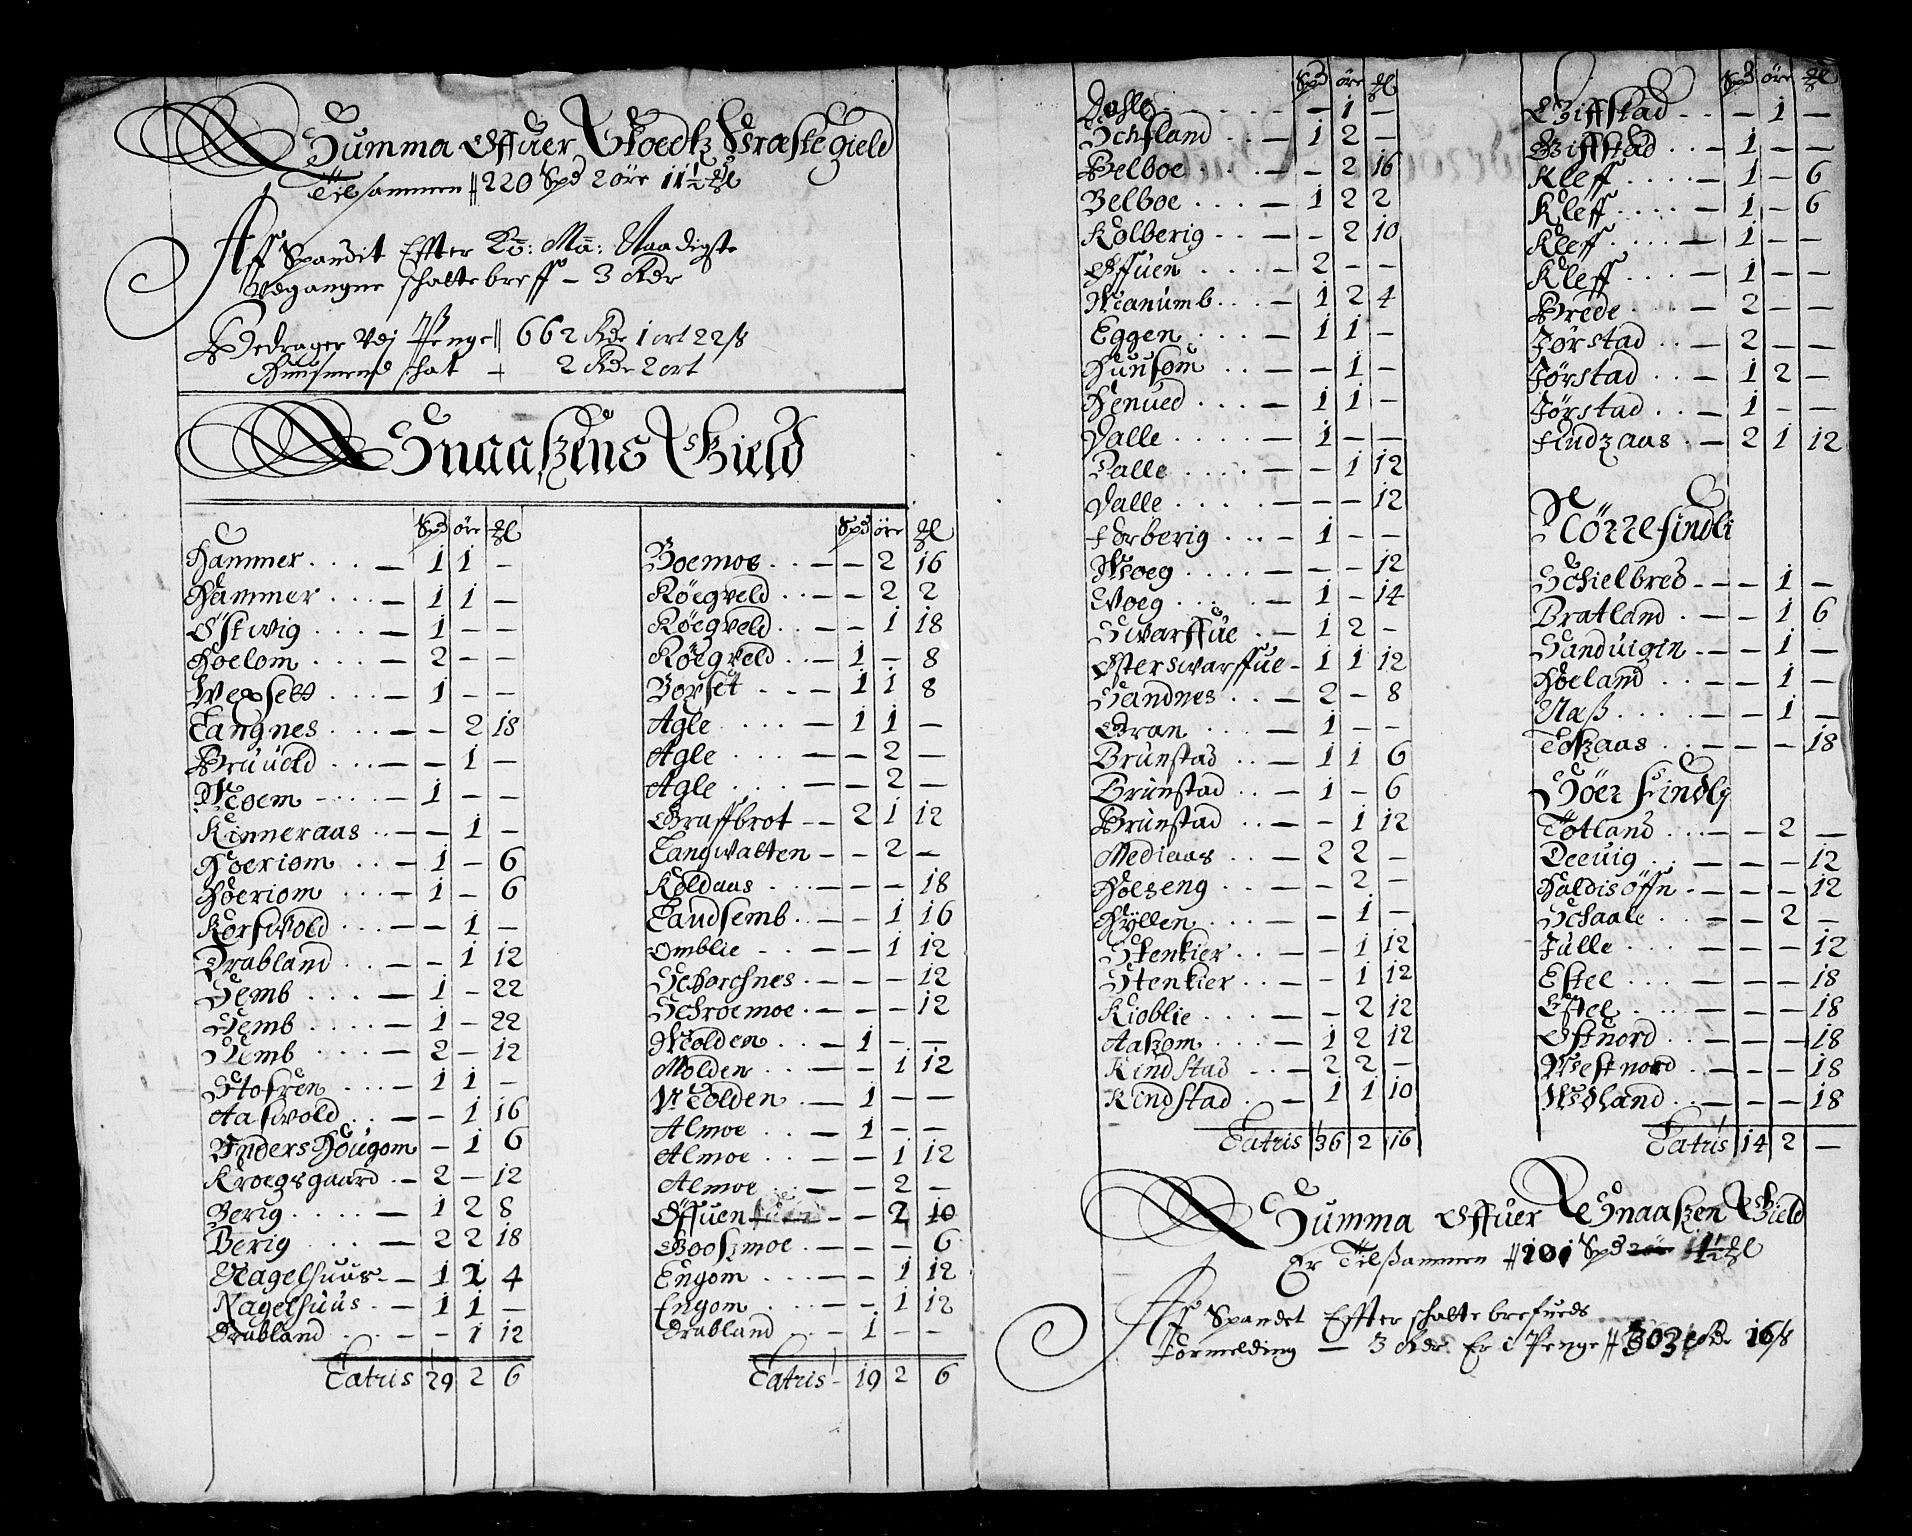 Summa Offuer Stoedtz Præstegield
Tilsammen # 220 Spd 2 öre 11½ ℳl
Aff Spandit Effter Ko: Ma: Naadigste
Vdgangne schattebreff - 3 Rdr
Bedrager Vdj Penge # 662 Rdr 1 ort 22 ß
Huusmend schat + 2 Rdr 2 ort
Snaaszens Gield
Spd öre ℳl
Hammer 1 1 -
Hammer 1 1 -
Östwig 1 - -
Hoelom 2 - -
Wexselt 1 - -
Tangnes - 2 18
Bruuold - 1 -
Moem 1 - -
Kinneraas - 1 -
Hoeriom 1 - 6
Hoeriom 1 - 6
Korswold - 1 -
Drabland - 1 12
Semb 1 - 22
Semb 1 - 22
Semb 2 - 12
Stofren 1 1 -
Aaswold - 1 16
Vnders Höugom - 1 6
Kroegsgaard 2 - 12
Berig 1 2 8
Berig 2 2 18
Nagelhuus 1 1 4
Nagelhuus 1 1 -
Drabland - 1 12
Latris 29 2 6
Spd öre ℳl
Boemoe - 2 16
Röegveld - 2 2
Röegveld - 1 18
Röegveld 1 - 8
Borset 1 1 8
Agle 1 1 -
Agle - 2 -
Agle - 2 -
Graffbrot 2 1 12
Langwatten - 2 -
Koldaas - - 18
Landsemb - 1 16
Omblie - 1 12
Schorchnes - - 12
Schroemoe - - 12
Molden 1 - -
Molden - 1 12
Molden 1 - -
Almoe 1 - -
Almoe - 1 12
Almoe - 2 -
Öffuen - 2 10
Gooszmoe - - 6
Engom - 1 12
Engom - 1 12
Drabland 1 - -
Latris 19 2 6
Spd öre ℳl
Dahle - 1 -
Schfland 1 2 -
Belboe - 2 16
Belboe 1 2 2
Kolberig - 2 10
Offuen 2 - -
Manumb 1 2 4
Eggen 1 1 -
Hunsom - 1 -
Henued 1 1 -
Valle 1 - -
Valle - 1 12
Valle - - 12
Forberig 1 - -
Woeg - - 12
Woeg 1 - 14
Swarffue 1 2 -
Osterswarffue 1 1 12
Sandnes 2 - 8
Gran 1 - -
Brunstad 1 1 6
Brunstad 1 - 6
Brunstad - 1 12
Mediaas 2 2 -
Holzeng - 2 -
Hyllen - 1 -
Stenkier - 1 12
Stenkier - 1 12
Kioblie - 2 12
Aaszom 1 2 12
Kindstad 2 2 -
Kindstad 1 1 10
Latris 36 2 16
Spd öre ℳl
Giffstad - 1 -
Giffstad 1 - -
Kleff 1 - 6
Kleff 1 - 6
Kleff 1 - -
Kleff 1 - -
Brede 2 - -
Jörstad 2 - -
Jörstad 1 2 -
Jörstad 1 - -
Findzaas 2 1 12
Nörre findli
Schielbred - 1 -
Bratland - 1 6
Sanduigen - 1 -
Höeland - 1 -
Naß - 1 -
Toszaas - - 18
Söer findly
Totland - 2 -
Deeuig - - 12
Haldisöffn - - 12
Schaale - 2 -
Julle - - 12
Estel - - 18
Estel - - 18
Ostnord - - 18
Westnord - - 18
Wdland - - 18
Latris 14 2 -
Summa Offuer Snaaszen Gield
Er Tilsammen # 101 Spd 2 ör 1½ ℳl
Aff Spandet Effter schattebrefueds
Formelding - 3 Rdr. Er i Penge # 303 Rdr 16 ß